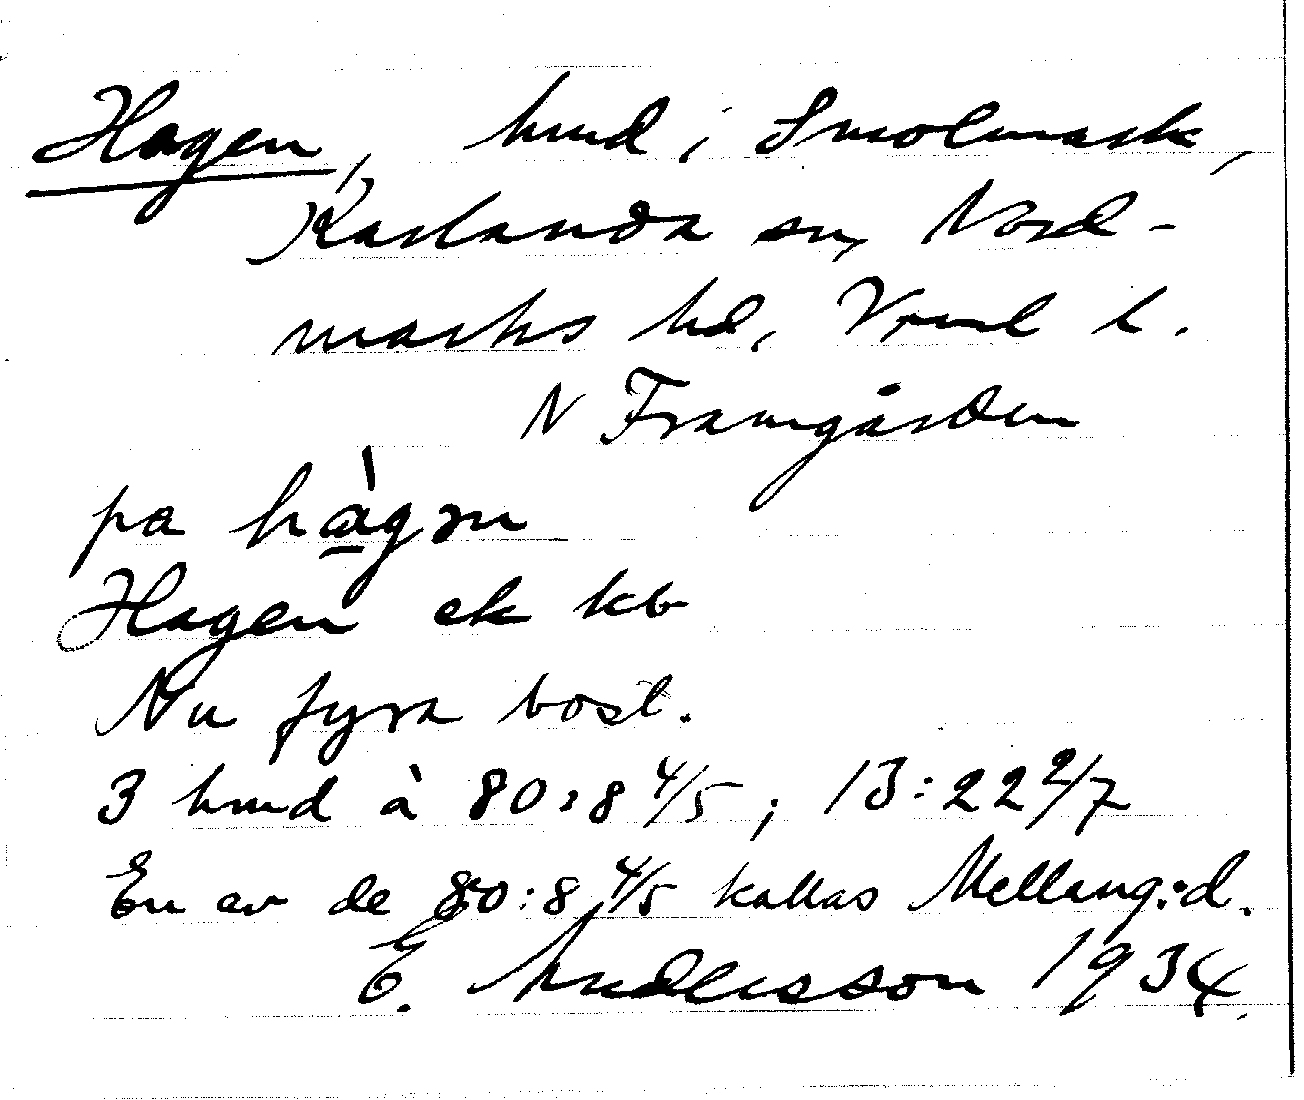 Hagen, hmd i Smolmark,
Karlanda sn, Nord-
marks hd, Vrml l.
N Framgården
pa hàgɜn
Hagen ek kb
Nu fyra bost.
3 hmd à 80:8 4/5; 13:22 2/7
En av de 80:8 4/5 kallas Mellang:d.
E. Andersson 1934.